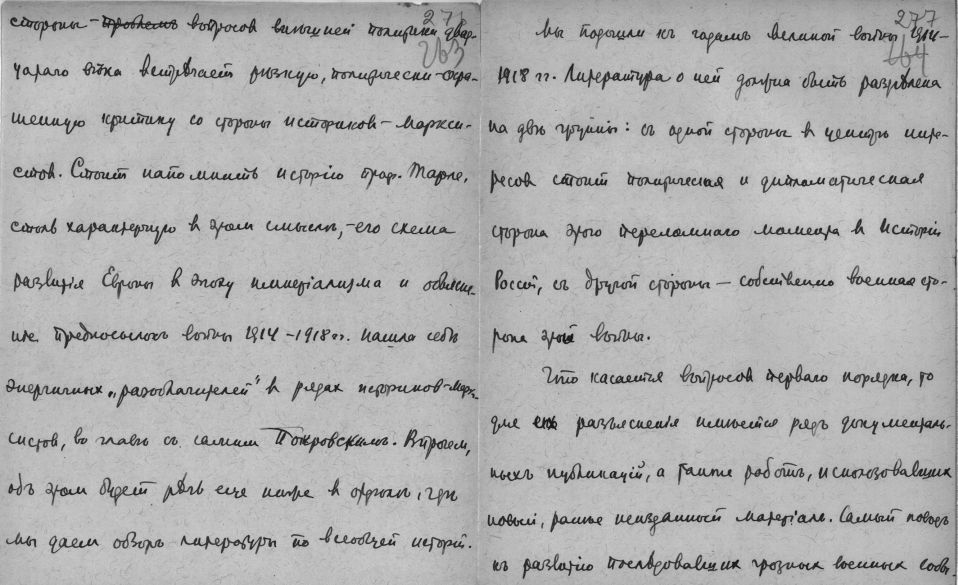 277
263
стороны – проблемъ вопросов внѣшней политики двад-
цатаго вѣка встрѣчает рѣзкую, политически-окра-
шенную критику со стороны историков-маркси-
стов. Стоит напомнить исторiю проф. Тарле,
столь характерную в этом смыслѣ, – его схема
развитiя Европы в эпоху имперiализма и объясне-
нiе предпосылок войны 1914–1918 гг. нашла себѣ
энергичных „разоблачителей“ в рядах историков-марк-
систов, во главѣ съ самим Покровскимъ. Впрочем,
объ этом будет рѣчь еще ниже в отдѣлѣ, гдѣ
мы даем обзоръ литературы по всеобщей исторiи.
277
264
Мы подошли къ годамъ великой войны 1914–
1918 гг. Литература о ней должна быть раздѣлена
на двѣ группы: съ одной стороны в центрѣ инте-
ресов стоит политическая и дипломатическая
сторона этого переломнаго момента в исторiи
Россiи, съ другой стороны – собственно военная сто-
рона этой войны.
Что касается вопросов перваго порядка, то
для их разъясненiя имѣется рядъ документаль-
ныхъ публикацiй, а также работъ, использовавших
новый, ранѣе неизданный матерiалъ. Самый поводъ
къ развитiю послѣдовавших грозных военных собы-